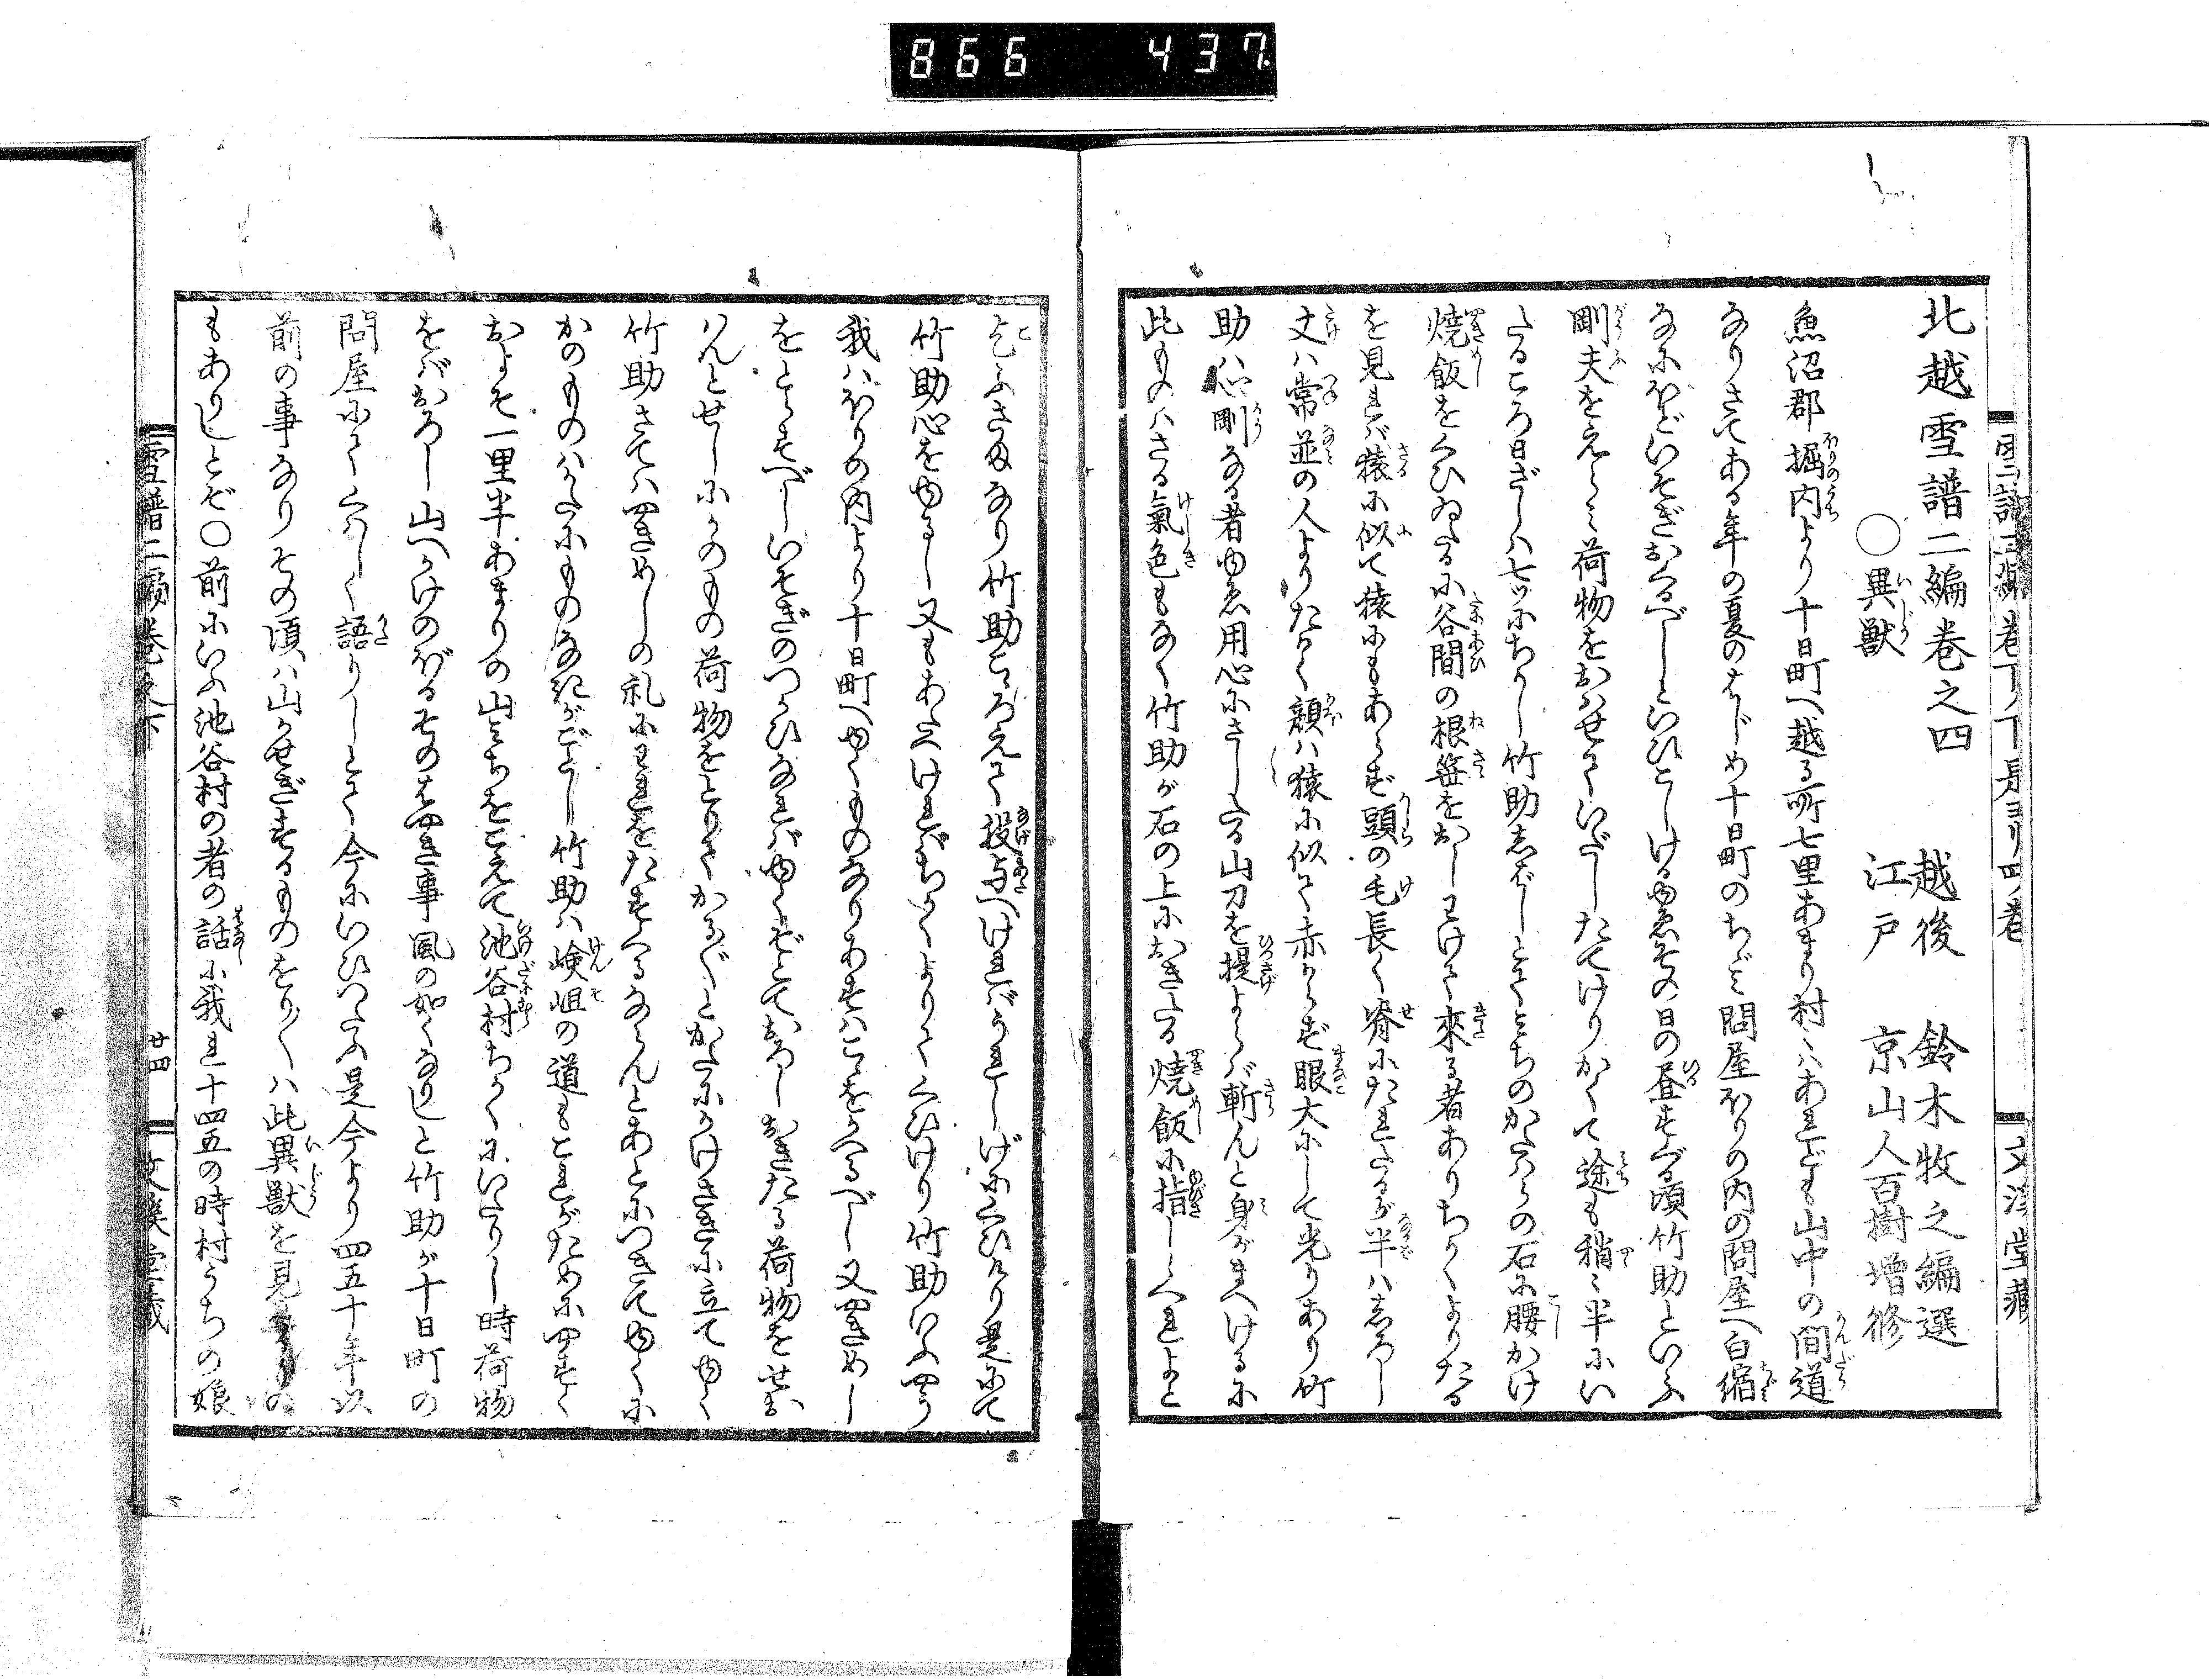 866 437
北越雪譜二編巻之四
越後 鈴木牧之編選
江戸 京山人百樹増修
○異獣
魚沼郡堀内より十日町へ越る所七里あまり村々はあれども山中の間道
なりさてある年の夏のはじめ十日町のちゞみ問屋ほりの内の問屋へ白縮
なにほどいそぎおくるべしといひこしけるゆゑその日の昼すぐる頃竹助といふ
剛夫をえらみ荷物をおはせていだしたてけりかくて途も稍々半にい
たるころ日ざしは七ツにちかし竹助しばしとてみちのかたはらの石に腰かけ
焼飯をくひゐたるに谷間の根笹をおしわけて來る者ありちかくよりたる
を見れば猿に似て猿にもあらず頭の毛長く脊にたれたるが半はしろし
丈は常並の人よりたかく顔は猿に似て赤からず眼大にして光りあり竹
助は心剛なる者ゆゑ用心にさしたる山刀を提よらば斬んと身がまへけるに
此ものはさる氣色もなく竹助が石の上におきたる焼飯に指しくれよと
乞ふさまなり竹助こゝろえて投与へければうれしげにくひけり是にて
竹助心をゆるし又もあたへければちかくよりてくひけり竹助いふやう
我はほりの内より十日町へゆくものなりあすはこゝをかへるべし又やきめし
をとらすべしいそぎのつかひなればゆくぞとておろしおきたる荷物をせお
はんとせしにかのもの荷物をとりてかる〴〵とかたにかけさきに立てゆく
竹助さてはやきめしの礼にわれをたすくるならんとあとにつきてゆくに
かのものはかたにものなきがごとし竹助は嶮岨の道もこれがためにやすく
およそ一里半あまりの山みちをこえて池谷村ちかくにいたりし時荷物
をばおろし山へかけのぼるそのはやき事風の如くなりしと竹助が十日町の
問屋にてくはしく語りしとて今にいひつたふ是今より四五十年以
前の事なりその頃は山かせぎするものをり〳〵は此異獣を見たるの
もありしとぞ○前にいふ池谷村の者の話に我れ十四五の時村うちの娘
雪譜二編巻之下
廿四
文溪堂蔵